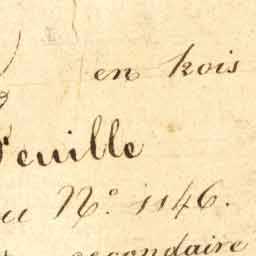 en kois
Feuille
au N.º 1146.
secondaire